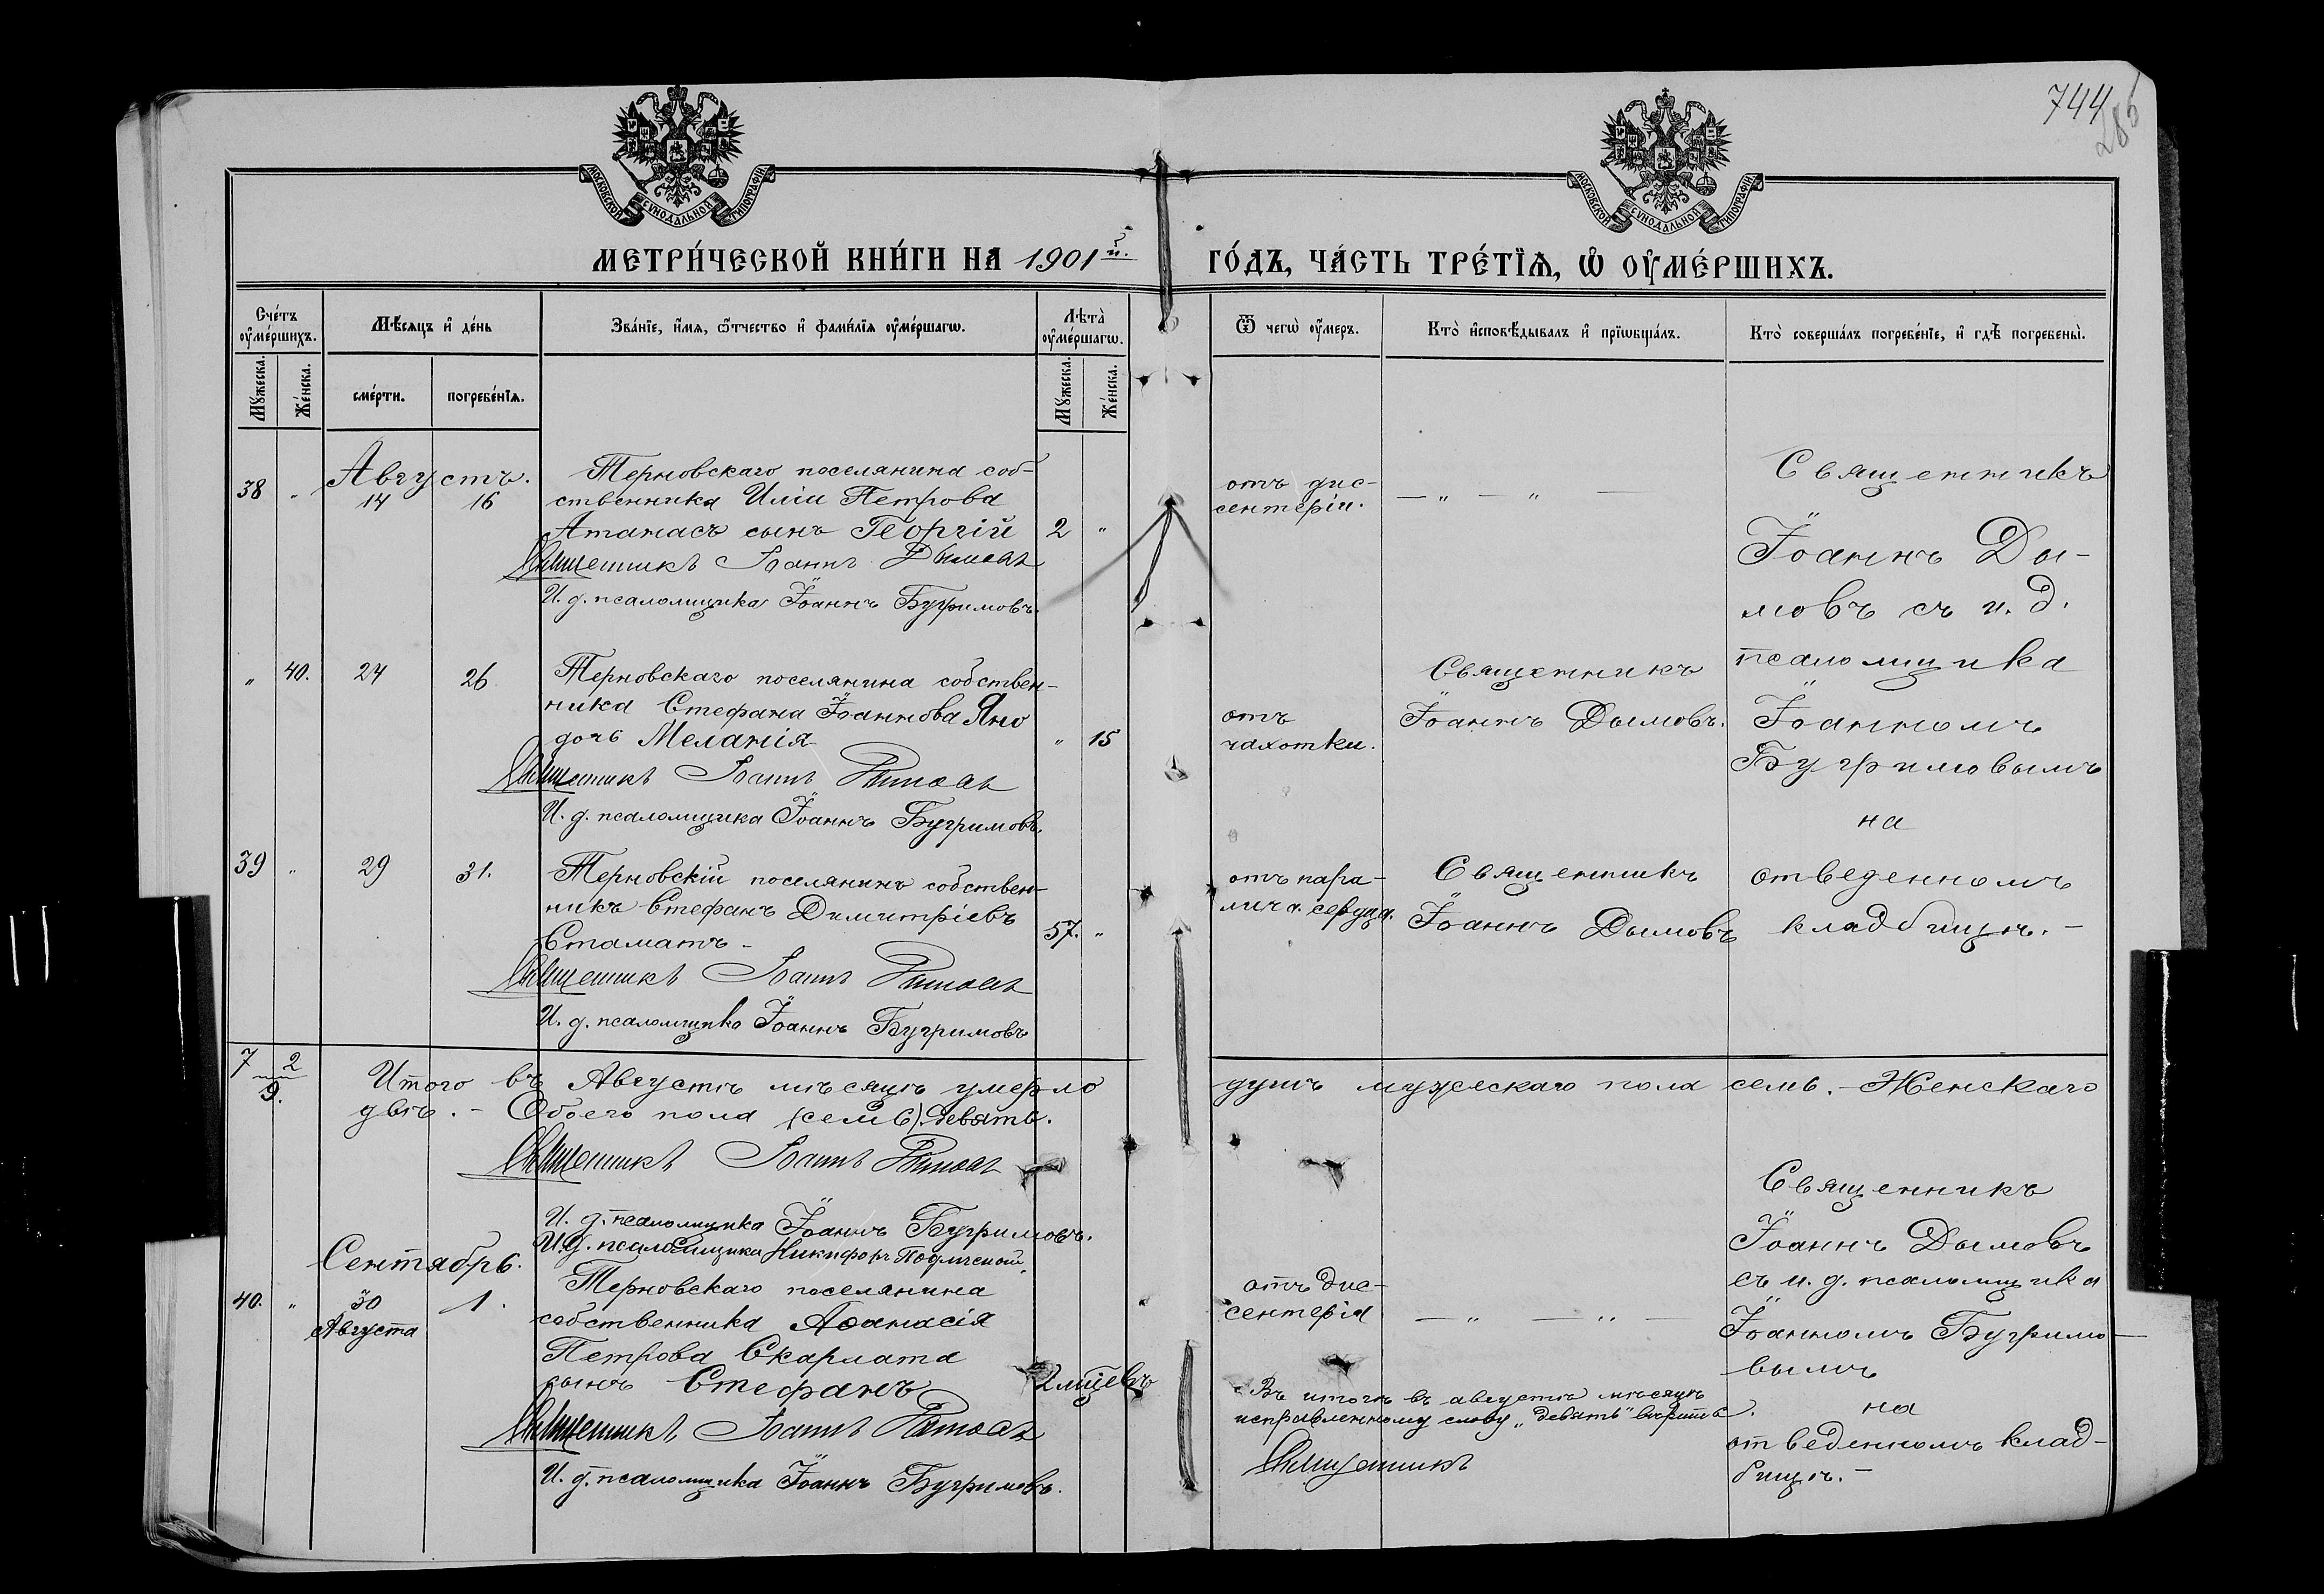 744
285
МОСКОВСКОЙ СѴНОДАЛЬНОЙ ТИПОГРАФІИ
МОСКОВСКОЙ СѴНОДАЛЬНОЙ ТИПОГРАФІИ
МЕТРИ́ЧЕСКОЙ КНИ́ГИ НА 1901й.
ГО́ДЪ, ЧА́СТЬ ТРЕ́ТЇѦ, Ѡ ОУМЕ́РШИХЪ.
Сче́тъ оуме́ршихъ.
Мѣсяцъ и де́нь
Зва́нїе, и́мя, ѿтчество и фами́лїя оуме́ршагѡ.
Лѣта̀ оуме́ршагѡ.
Ѿ чегѡ̀ оу́меръ.
Кто̀ исповѣ́дывалъ и прїѡбща́лъ.
Кто̀ соверша́лъ погребе́нїе, и гдѣ̀ погребены̀.
Мꙋжеска.
Же́нска.
сме́рти.
погребе́нїѧ.
Мꙋжеска.
Же́нска.
Августъ.
38 „ 14 16
Терновскаго поселянина соб-
ственника Иліи Петрова
Атанасъ сынъ Георгій 2 „
Священникъ Іоаннъ Дымовъ
И. д. псаломщика Іоаннъ Бугримовъ.
отъ дис-
сентеріи.
— „ — „ —
Священникъ
Іоаннъ Ды-
мовъ съ и. д.
псаломщика
Іоанномъ
Бугримовымъ
на
отведенномъ
кладбищѣ. —
„ 40. 24 26
Терновскаго поселянина собствен-
ника Стефана Іоаннова Яно
дочь Меланія „ 15
Священникъ Іоаннъ Дымовъ
И. д. псаломщика Іоаннъ Бугримовъ.
отъ
чахотки.
Священникъ
Іоаннъ Дымовъ.
39 „ 29 31.
Терновскій поселянинъ собствен-
никъ Стефанъ Димитріевъ
Стаматъ - 57. „
Священникъ Іоаннъ Дымовъ
И. д. псаломщика Іоаннъ Бугримовъ
отъ пара-
лича сердца.
Священникъ
Іоаннъ Дымовъ
7 2
9.
Итого въ Августѣ мѣсяцѣ умерло душъ мужескаго пола семь. — Женскаго
двѣ. — Обоего пола (семь). девять.
Священникъ Іоаннъ Дымовъ
И. д. псаломщика Іоаннъ Бугримовъ.
И. д. псаломщика Никифоръ
Сентябрь.
40. „ 30 1.
Августа
Терновскаго поселянина
собственника Аѳанасія
Петрова Скарлата
сынъ Стефанъ 2 мѣсяцевъ
Священникъ Іоаннъ Дымовъ
И. д. псаломщика Іоаннъ Бугримовъ.
отъ дис-
сентеріи
— „ — „ —
Священникъ
Іоаннъ Дымовъ
съ и. д. псаломщика
Іоанномъ Бугримо-
вымъ
на
отведенномъ клад-
бищѣ. —
Въ итогѣ въ августѣ мѣсяцѣ
исправленному слову „девять" вѣрить.
Священникъ